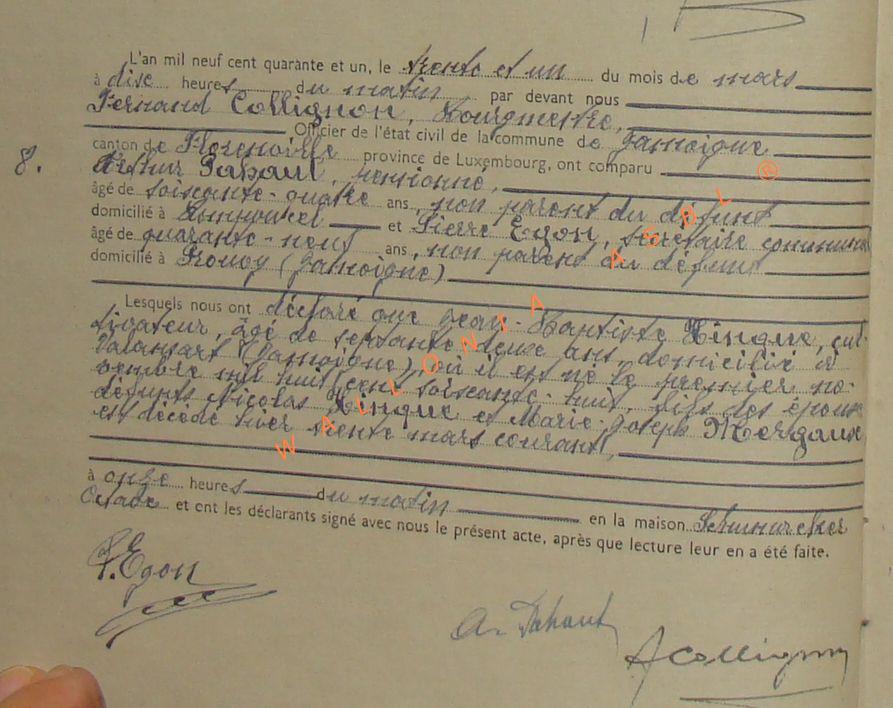 L'an mil neuf cent quarante et un, le trente et un du mois de mars
à dix heures du matin par devant nous
Fernand Collignon, Bourgmestre,
Officier de l'état civil de la commune de Jamoigne
canton de Florenville province de Luxembourg, ont comparu
8. Arthur Dahaut, pensionné,
âgé de soixante-quatre ans, non parent du défunt
domicilié à et Pierre Egon, secrétaire communal
âgé de quarante-neuf ans, non parent du défunt
domicilié à Prouvy (Jamoigne)
Lesquels nous ont déclaré que Jean-Baptiste Hinque, cul-
tivateur, âgé de septante-deux ans, domicilié à
Valansart (Jamoigne) où il est né le premier no-
vembre mil huit cent soixante-huit, fils des époux
défunts Nicolas Hinque et Marie-Joseph Mergaux
est décédé hier trente mars courant,
à onze heures du matin en la maison Schumacker
Octave et ont les déclarants signé avec nous le présent acte, après que lecture leur en a été faite.
P. Egon
A. Dahaut
F Collignon
WALLONIA ASBL ®